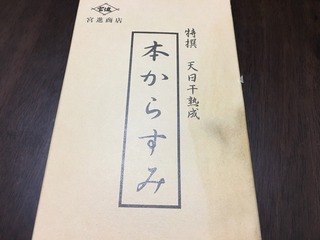 宮進
宮進商店
特撰 天日干熟成
本からすみ